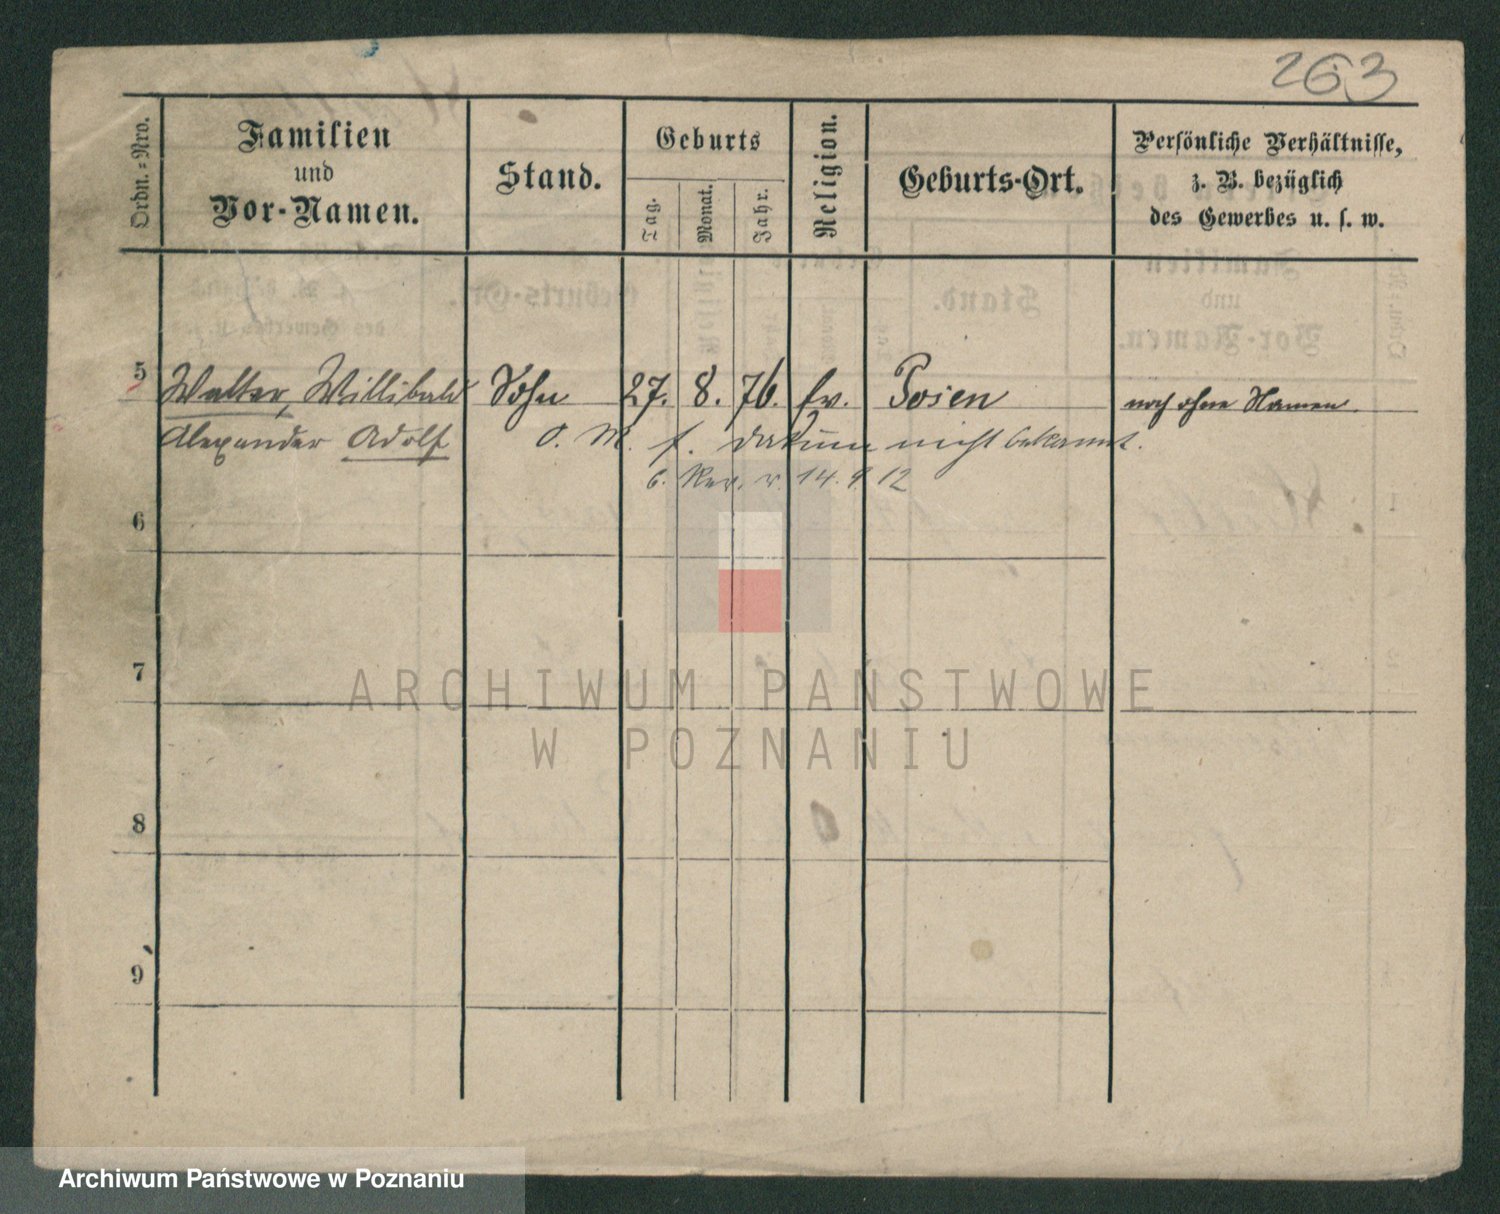 263
Ordn.=Nro.
Familien
und
Vor-Namen.
Stand.
Geburts
Tag.
Monat.
Jahr.
Religion.
Geburts-Ort.
Persönliche Verhältnisse,
z. B. bezüglich
des Gewerbes u. s. w.
5 Walter, Willibald Sohn 27. 8. 76. ev. Posen noch ohne Namen
Alexander Adolf
O. M. f. Datum nicht bekannt.
6. Rev. v. 14.9.12
6
7
8
9
ARCHIWUM PAŃSTWOWE
W POZNANIU
Archiwum Państwowe w Poznaniu